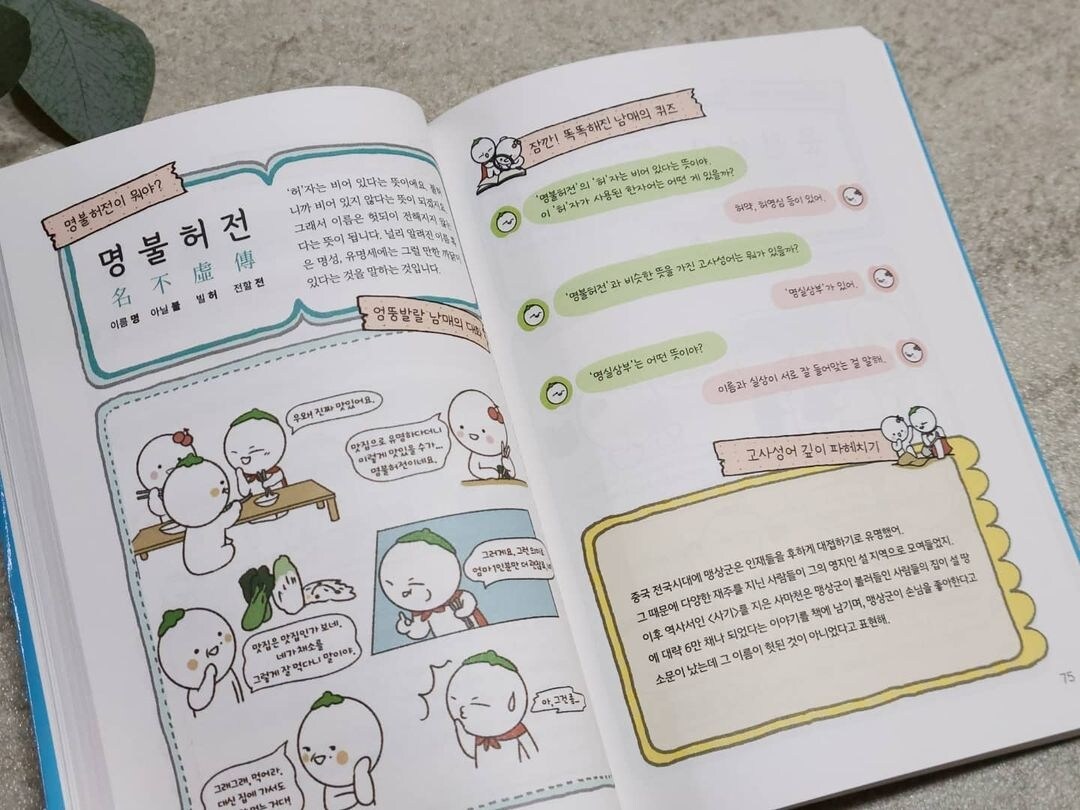 명불허전이 뭐야?
명불허전
名不虛傳
이름 명 아닐 불 빌 허 전할 전
'허'자는 비어 있다는 뜻이에요.
니까 비어 있지 않다는 뜻이 되겠지요.
그래서 이름은 헛되이 전해지지 않는
다는 뜻이 됩니다. 널리 알려진 이름
은 명성, 유명세에는 그럴 만한 까닭이
있다는 것을 말하는 것입니다.
엉뚱발랄 남매의 대화
우와 진짜 맛있어요.
맛집으로 유명하다더니
이렇게 맛있을 수가...
명불허전이네요.
그러게요, 그런 의미로
엄마 1인분만 더
맛집은 맛집인가 보네.
네가 채소를
그렇게 잘 먹다니 말이야.
아, 그건 좀...
그래그래, 먹어라.
대신 집에 가서도
먹는 거다!
잠깐! 똑똑해진 남매의 퀴즈
'명불허전'의 '허'자는 비어 있다는 뜻이야.
이 '허'자가 사용된 한자어는 어떤 게 있을까?
허약, 허영심 등이 있어.
'명불허전'과 비슷한 뜻을 가진 고사성어는 뭐가 있을까?
'명실상부'가 있어.
'명실상부'는 어떤 뜻이야?
이름과 실상이 서로 잘 들어맞는 걸 말해.
고사성어 깊이 파헤치기
중국 전국시대에 맹상군은 인재들을 후하게 대접하기로 유명했어.
그 때문에 다양한 재주를 지닌 사람들이 그의 영지인 설 지역으로 모여들었지.
이후 역사서인 <사기>를 지은 사마천은 맹상군이 불러들인 사람들의 집이 설 땅
에 대략 6만 채나 되었다는 이야기를 책에 남기며, 맹상군이 손님을 좋아한다고
소문이 났는데 그 이름이 헛된 것이 아니었다고 표현해.
75